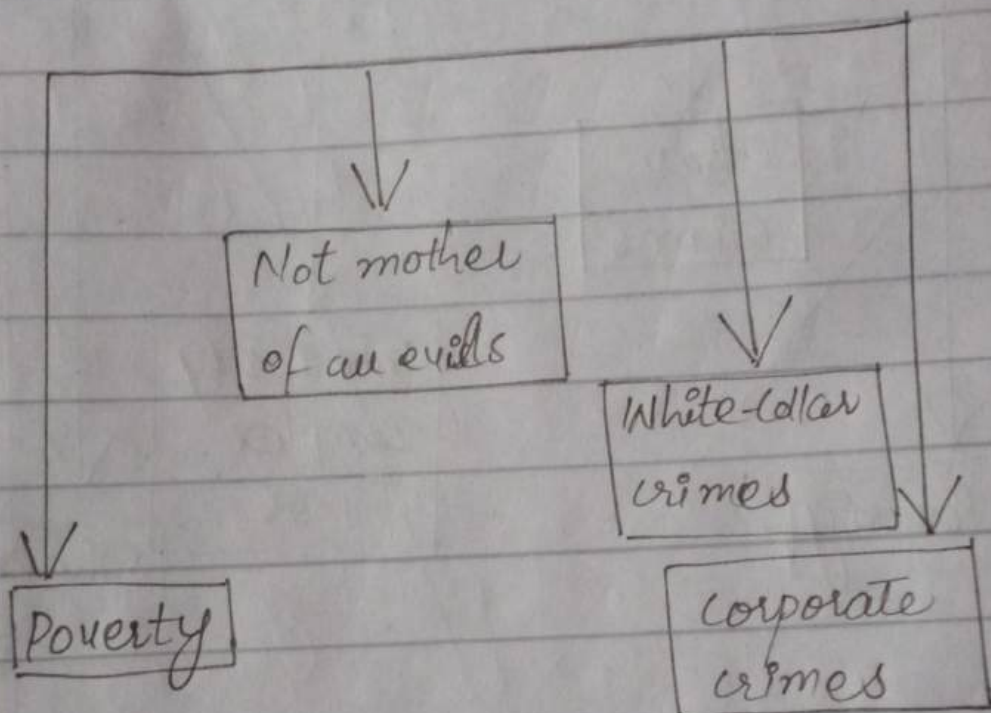 Not mother
of all evils
White-collar
crimes
Poverty
corporate
crimes